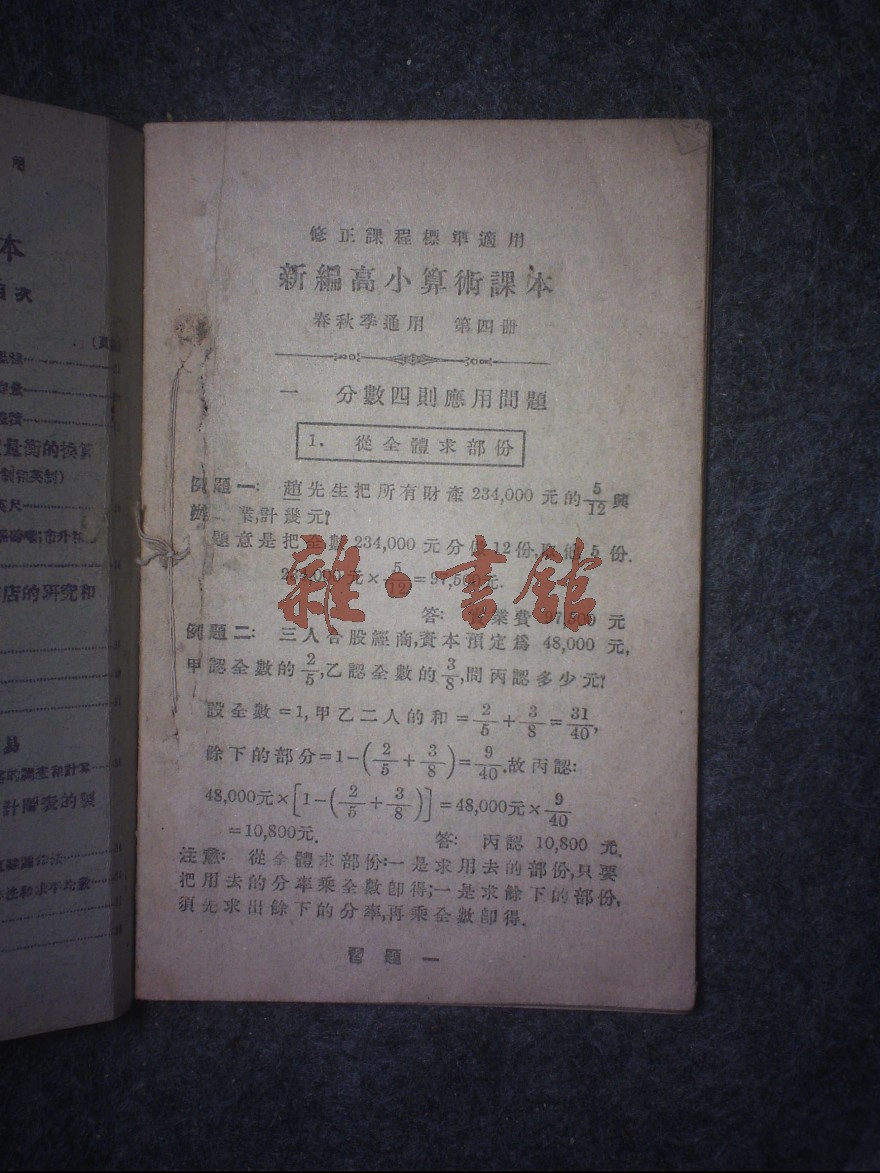 用
本
目次
量衡的換算
店的研究和
易
修正課程標準適用
新編高小算術課本
春秋季通用 第四冊
一 分數四則應用問題
1. 從全體求部份
例題一: 趙先生把所有財產 234,000 元的 5/12 興
辦 業,計幾元?
題意是把全數 234,000 元分做 12 份,取他 5 份.
234,000元×5/12=97,500元.
答: 業費 97,500 元
例題二: 三人合股經商,資本預定爲 48,000 元,
甲認全數的 2/5,乙認全數的 3/8,問丙認多少元?
設全數=1,甲乙二人的和=2/5+3/8=31/40,
餘下的部分=1-(2/5+3/8)=9/40.故丙認:
48,000元×[1-(2/5+3/8)]=48,000元×9/40
=10,800元. 答: 丙認 10,800 元.
注意: 從全體求部份:一是求用去的部份,只要
把用去的分率乘全數卽得;一是求餘下的部份,
須先求出餘下的分率,再乘全數卽得.
習題一
雜·書館